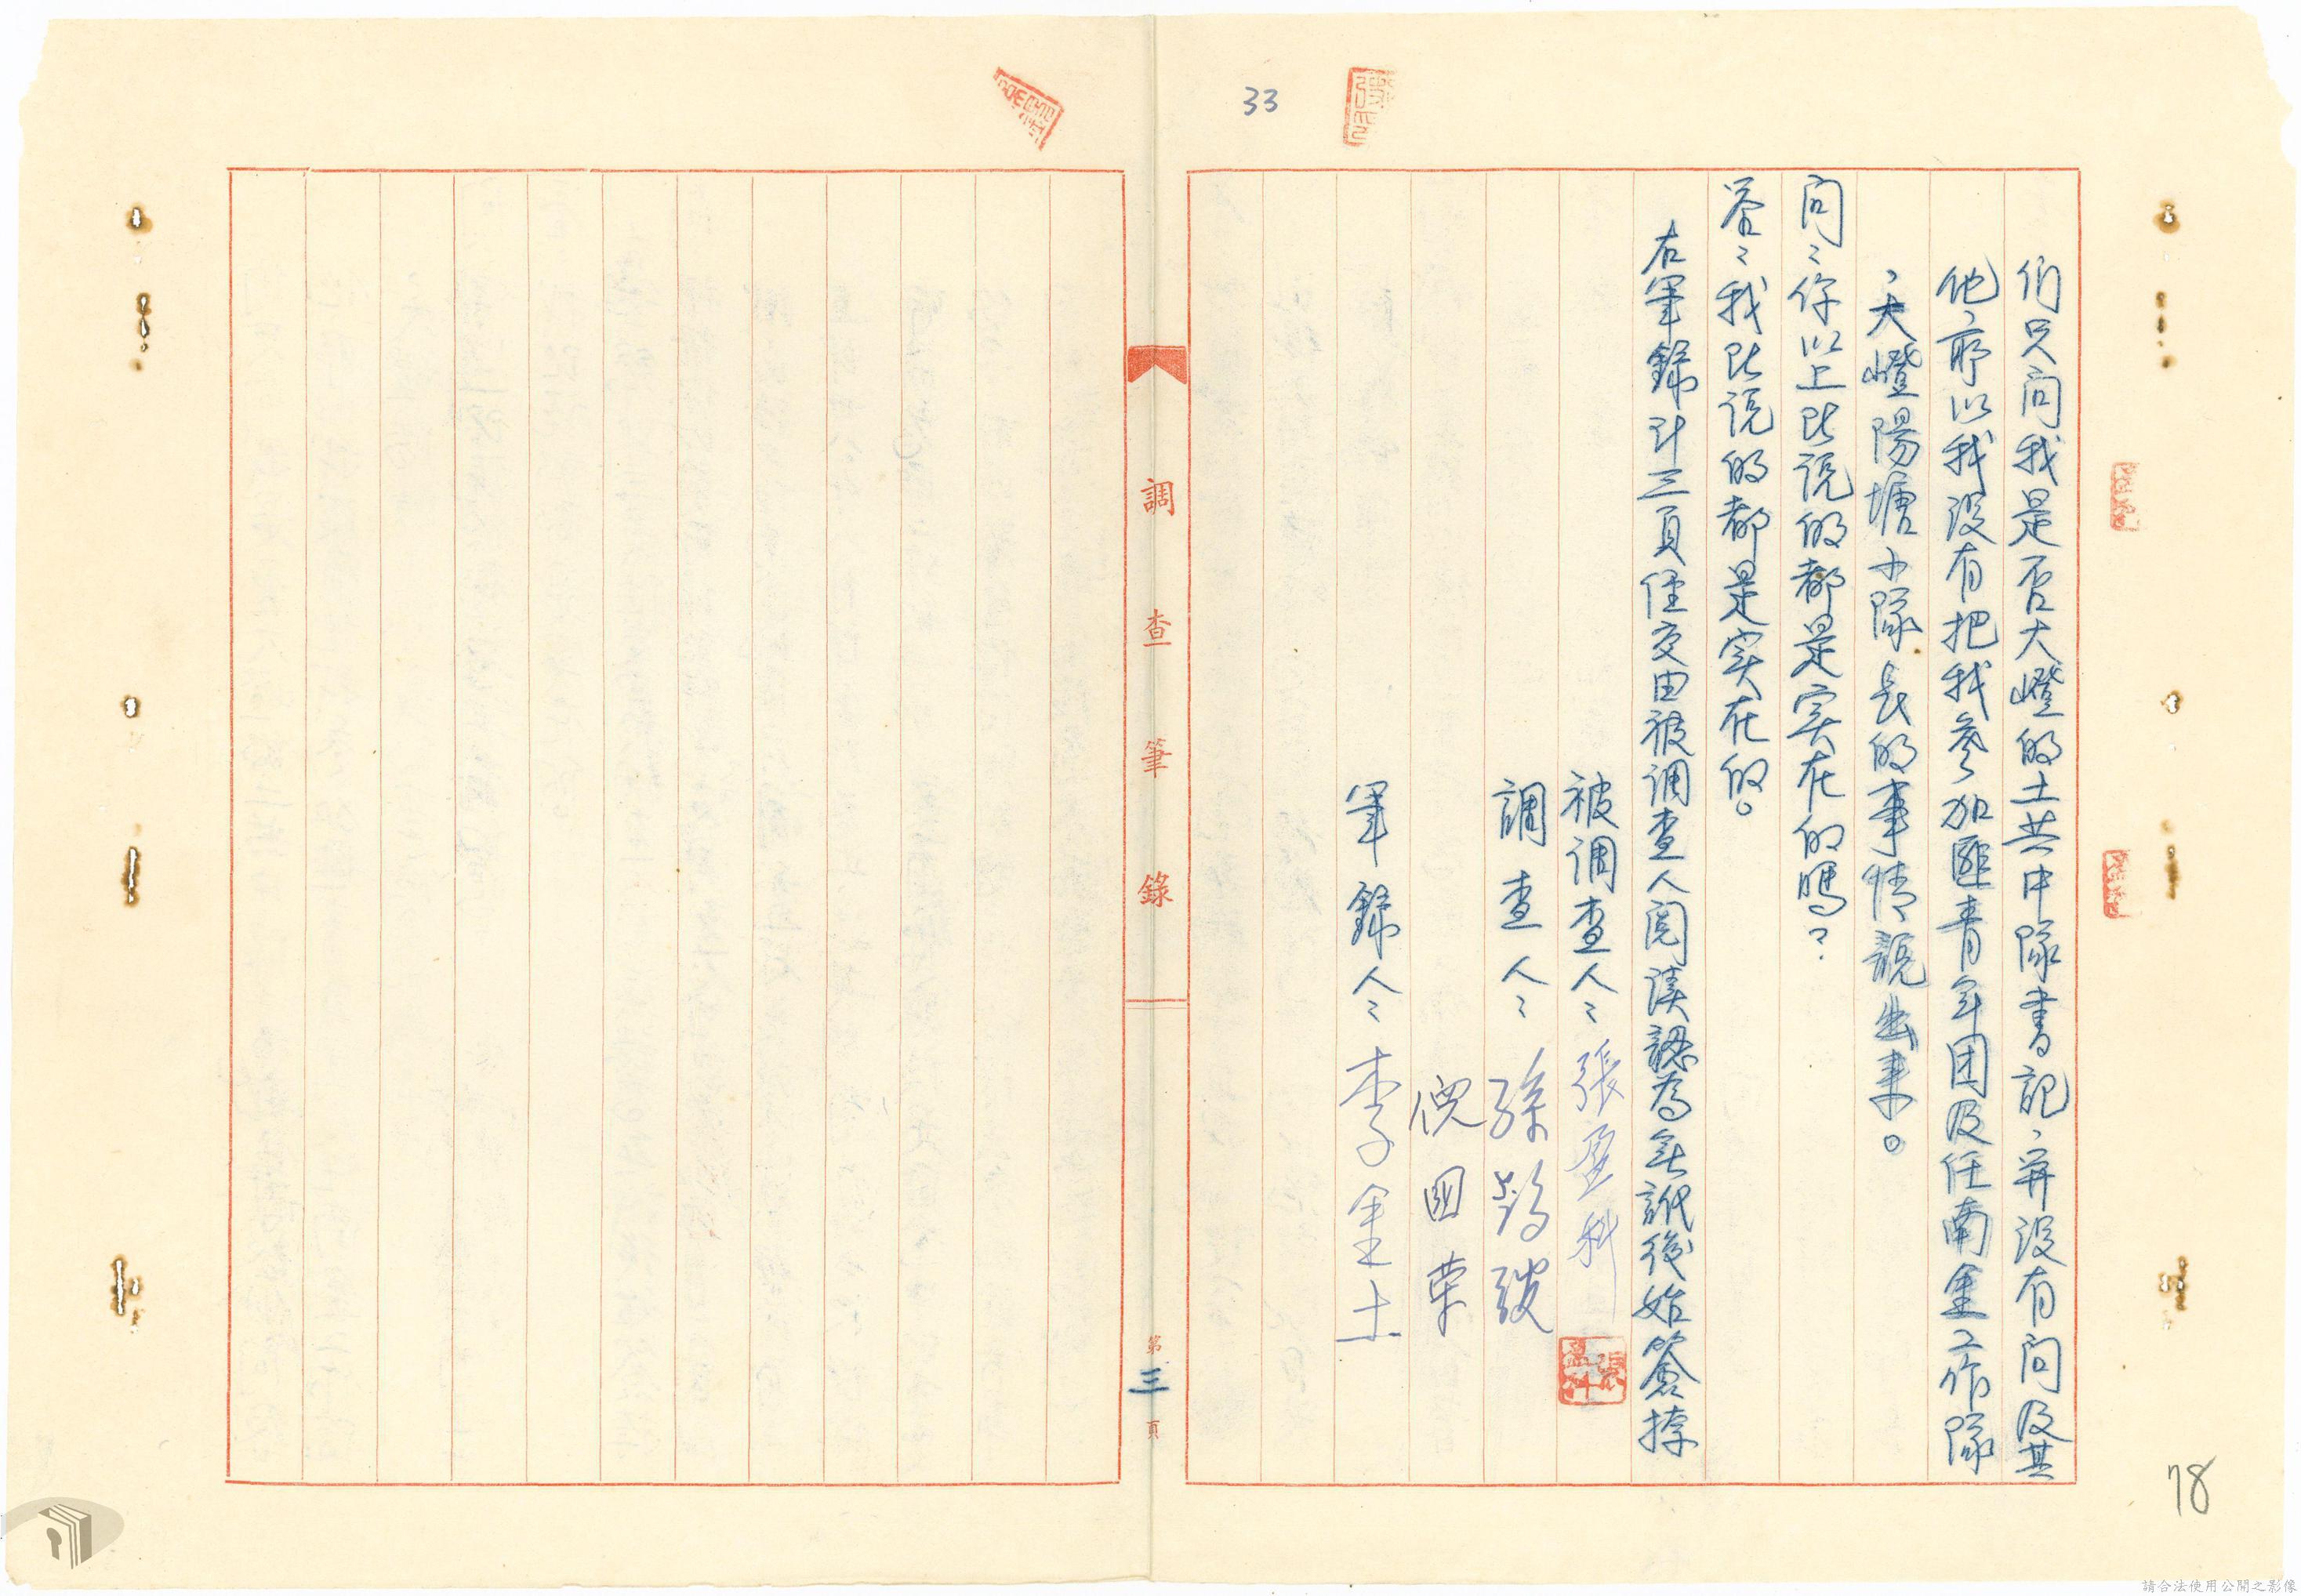 33
们只问我是否大嶝的土共中隊書記、并没有问及其
他、所以我没有把我參加匪青年团及任南金工作隊
、大嶝陽塘小隊長的事情説出来。
问：你以上所说的都是实在的嗎？
答：我所说的都是实在的。
右筆錄計三頁經交由被调查人阅读認為無訛後始簽捺
被调查人：張盈科
調查人：孫
倪国荣
筆錄人：李金土
調查筆錄
第三頁
78
請合法使用公開之影像